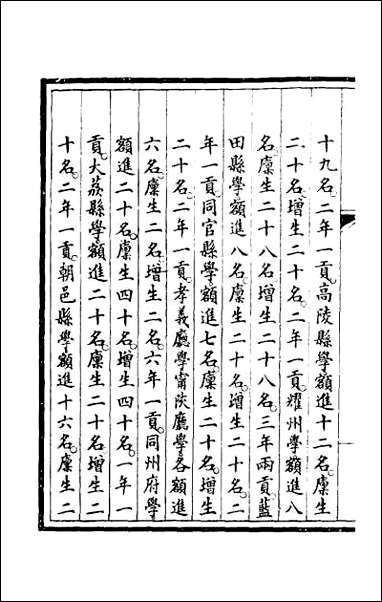 十九名二年一貢高陵縣學額進十二名廩生
二十名增生二十名二年一貢耀州學額進八
名廩生二十八名增生二十八名三年兩貢藍
田縣學額進八名廩生二十名增生二十名二
年一貢同官縣學額進七名廩生二十名增生
二十名二年一貢孝義廳學甯陝廳學各額進
六名廩生二名增生二名六年一貢同州府學
額進二十名廩生四十名增生四十名一年一
貢大荔縣學額進二十名廩生二十名增生二
十名二年一貢朝邑縣學額進十六名廩生二